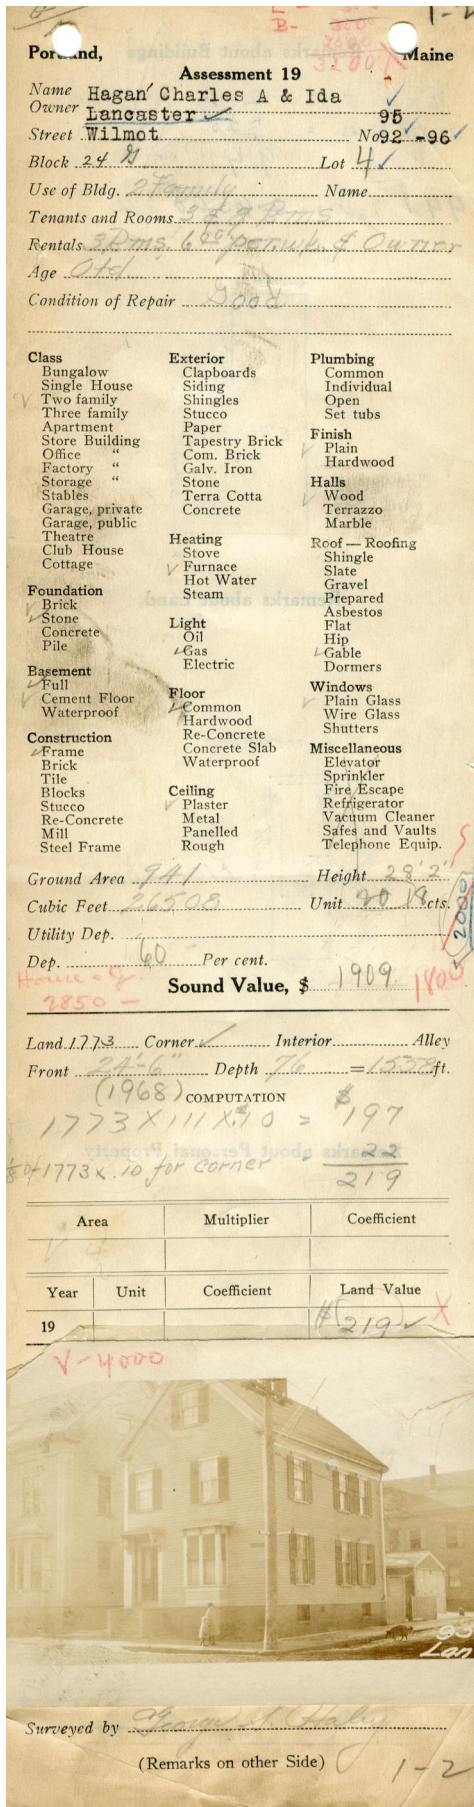 1-2
B-
3200
Portland, Maine
Assessment 19
Name Hagan Charles A & Ida
Owner Lancaster 95
Street Wilmot No 92 -96
Block 24 G Lot 4
Use of Bldg. 2 Family Name
Tenants and Rooms 3 & 9 Rms
Rentals 3 Rms. 6 00 per wk. & Owner
Age Old
Condition of Repair Good
Class
Bungalow
Single House
Two family
Three family
Apartment
Store Building
Office "
Factory "
Storage "
Stables
Garage, private
Garage, public
Theatre
Club House
Cottage
Foundation
Brick
Stone
Concrete
Pile
Basement
Full
Cement Floor
Waterproof
Construction
Frame
Brick
Tile
Blocks
Stucco
Re-Concrete
Mill
Steel Frame
Exterior
Clapboards
Siding
Shingles
Stucco
Paper
Tapestry Brick
Com. Brick
Galv. Iron
Stone
Terra Cotta
Concrete
Heating
Stove
Furnace
Hot Water
Steam
Light
Oil
Gas
Electric
Floor
Common
Hardwood
Re-Concrete
Concrete Slab
Waterproof
Ceiling
Plaster
Metal
Panelled
Rough
Plumbing
Common
Individual
Open
Set tubs
Finish
Plain
Hardwood
Halls
Wood
Terrazzo
Marble
Roof — Roofing
Shingle
Slate
Gravel
Prepared
Asbestos
Flat
Hip
Gable
Dormers
Windows
Plain Glass
Wire Glass
Shutters
Miscellaneous
Elevator
Sprinkler
Fire Escape
Refrigerator
Vacuum Cleaner
Safes and Vaults
Telephone Equip.
Ground Area 941 Height 28' 2"
Cubic Feet 26508 Unit 20 18 cts.
2000
Utility Dep.
Dep. 60 Per cent.
House
2850 -
Sound Value, $ 1909 1800
Land 1773 Corner Interior Alley
Front 24'-6" Depth 76 = 1538 ft.
(1968) COMPUTATION
1773 X 111 X .10 = $ 197
1773 x .10 for corner = 22
219
Area Multiplier Coefficient
Year Unit Coefficient Land Value
19 $ 219 X
V-4000
93
Lan
Surveyed by George
(Remarks on other Side)
1-2